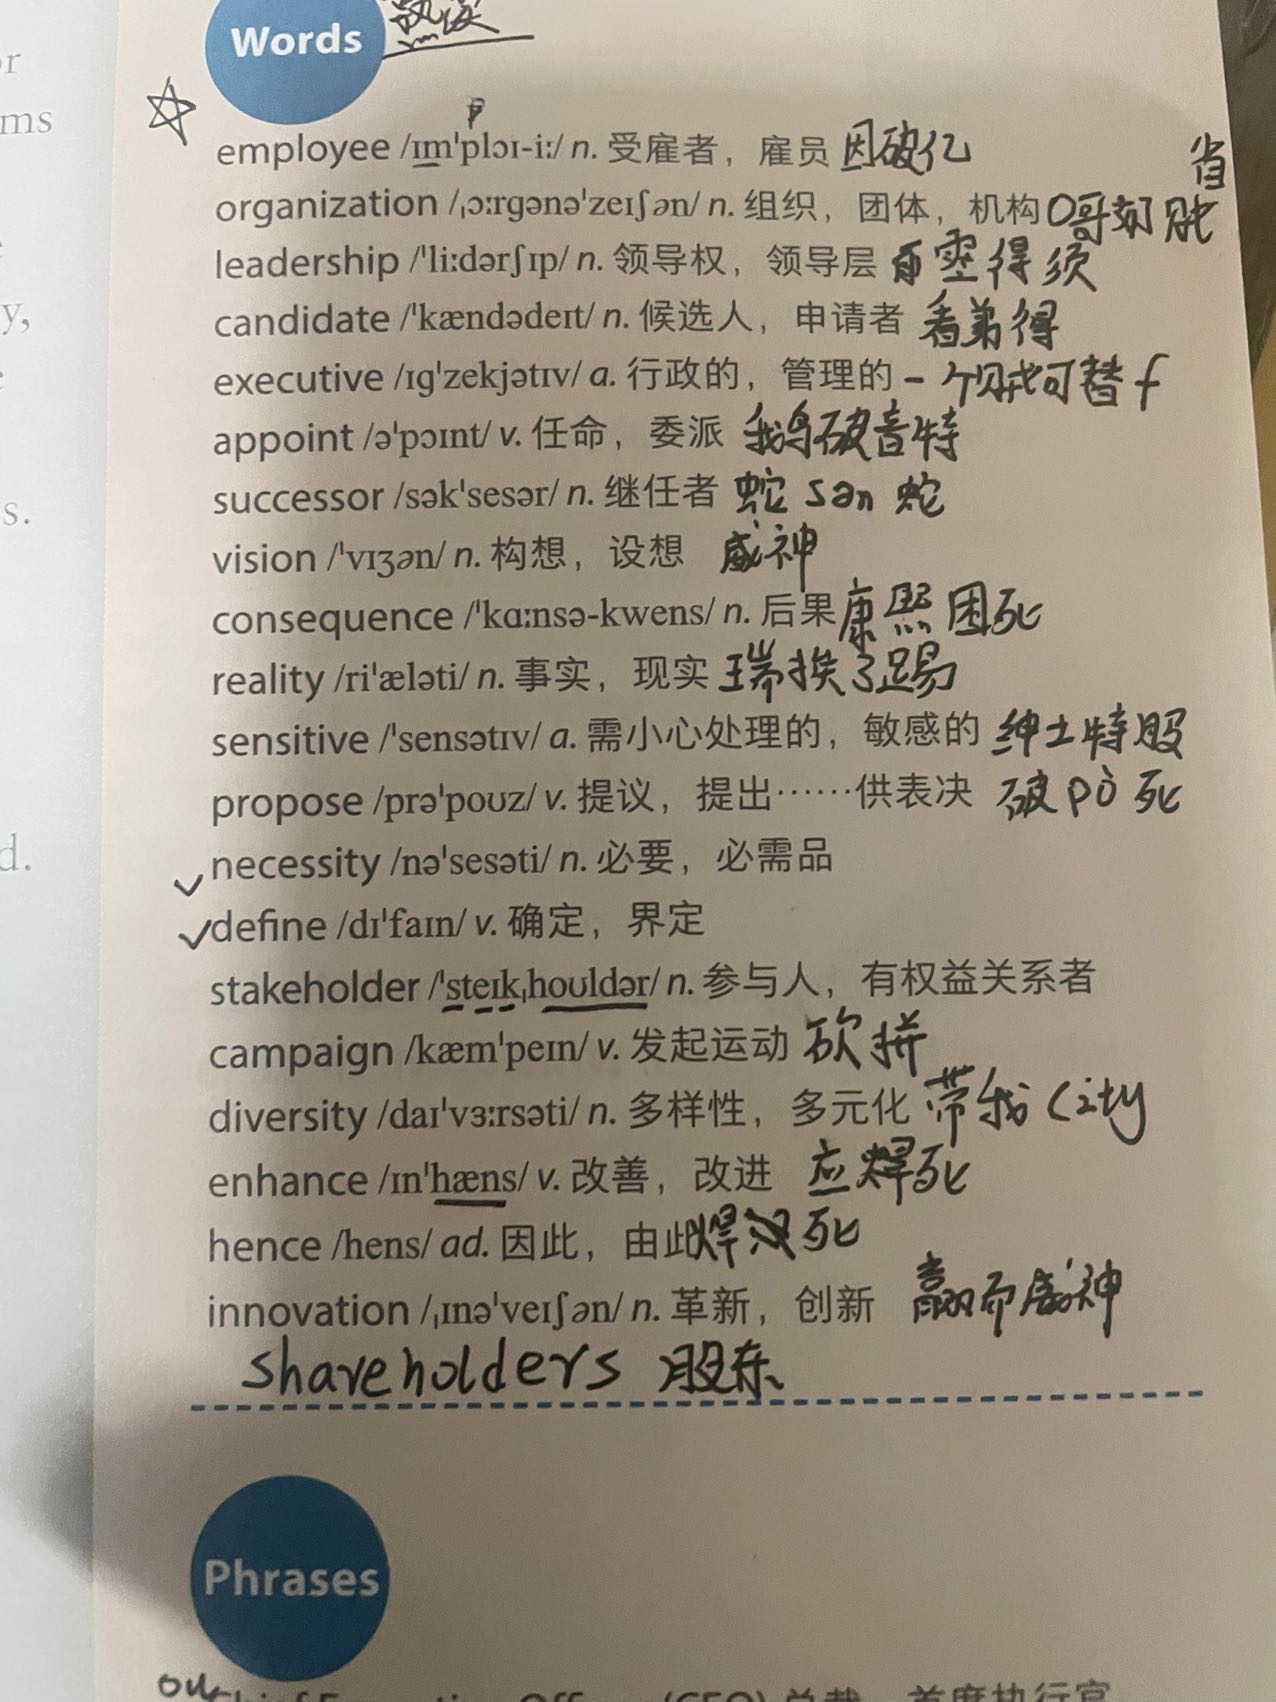 or
Words 熟读
ms
employee /ɪmˈplɔɪ-iː/ n. 受雇者，雇员 因破亿
organization /ˌɔːrgənəˈzeɪʃən/ n. 组织，团体，机构 O哥
leadership /ˈliːdərʃɪp/ n. 领导权，领导层 雨霆得须
y,
candidate /ˈkændədeɪt/ n. 候选人，申请者 看弟得
executive /ɪgˈzekjətɪv/ a. 行政的，管理的 一个贼可替f
appoint /əˈpɔɪnt/ v. 任命，委派 我鸟破音特
s.
successor /səkˈsesər/ n. 继任者 蛇 san 蛇
vision /ˈvɪʒən/ n. 构想，设想 威神
consequence /ˈkɑːnsə-kwens/ n. 后果 康熙困死
reality /riˈæləti/ n. 事实，现实 瑞挨了踢
sensitive /ˈsensətɪv/ a. 需小心处理的，敏感的 绅士特股
propose /prəˈpoʊz/ v. 提议，提出……供表决 破pò死
d.
necessity /nəˈsesəti/ n. 必要，必需品
define /dɪˈfaɪn/ v. 确定，界定
stakeholder /ˈsteɪkˌhoʊldər/ n. 参与人，有权益关系者
campaign /kæmˈpeɪn/ v. 发起运动 砍拼
diversity /daɪˈvɜːrsəti/ n. 多样性，多元化 带我City
enhance /ɪnˈhæns/ v. 改善，改进 应焊死
hence /hens/ ad. 因此，由此 焊死
innovation /ˌɪnəˈveɪʃən/ n. 革新，创新 赢而威神
shareholders 股东
Phrases